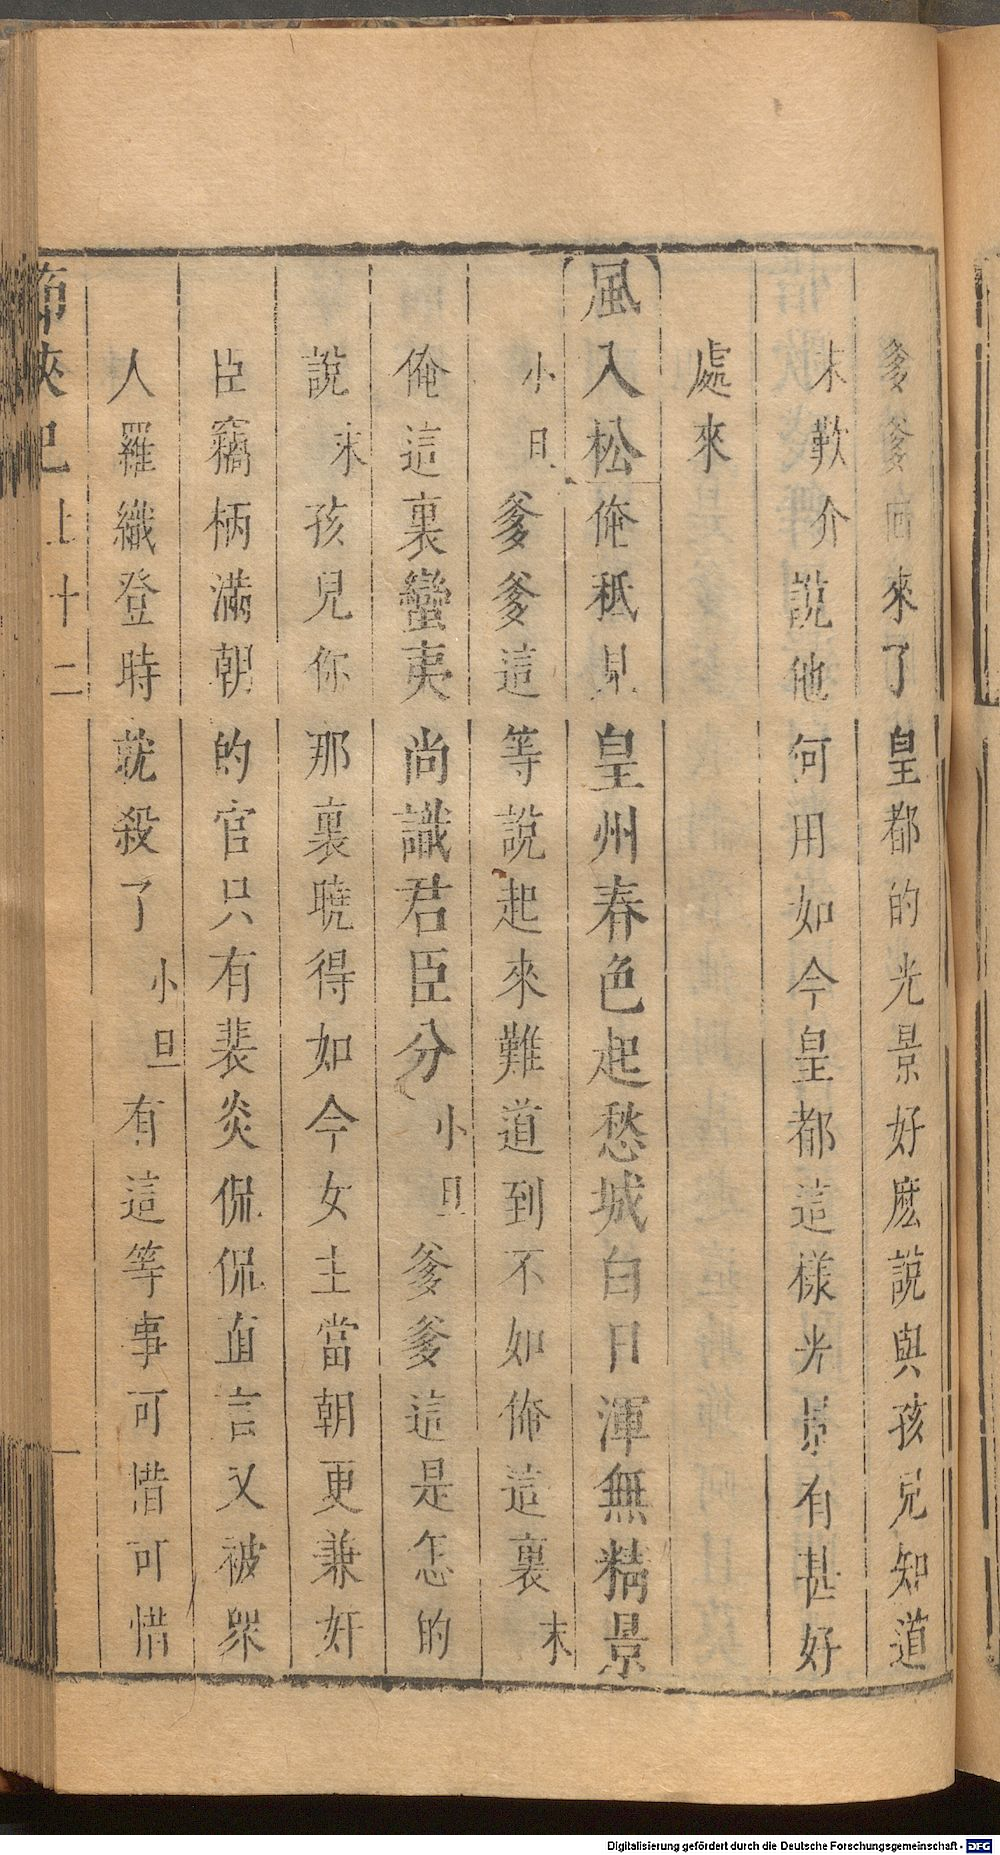 爹爹回來了皇都的光景好麽說與孩兒知道
末歎介說他何用如今皇都這樣光景有甚好
處來
風入松俺秖見皇州春色起愁城白日渾無精景
小旦爹爹這等說起來難道到不如俺這裏末
俺這裏蠻夷尚識君臣分小旦爹爹這是怎的
說末孩兒你那裏曉得如今女主當朝更兼奸
臣竊柄滿朝的官只有裴炎侃侃直言又被眾
人羅織登時就殺了小旦有這等事可惜可惜
節俠記上十二
Digitalisierung gefördert durch die Deutsche Forschungsgemeinschaft - DFG